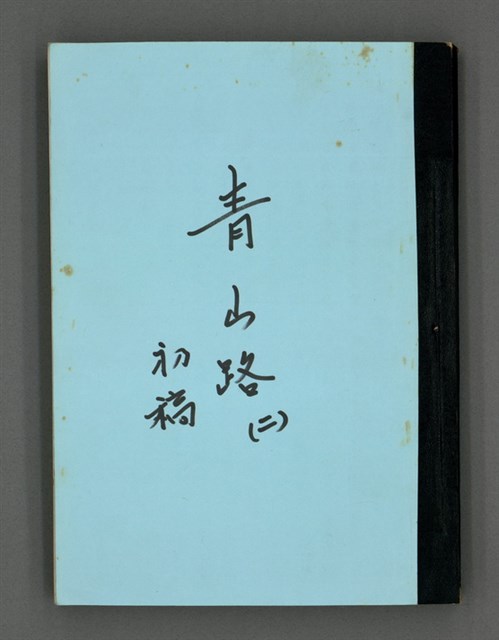 青山路(二)
初稿